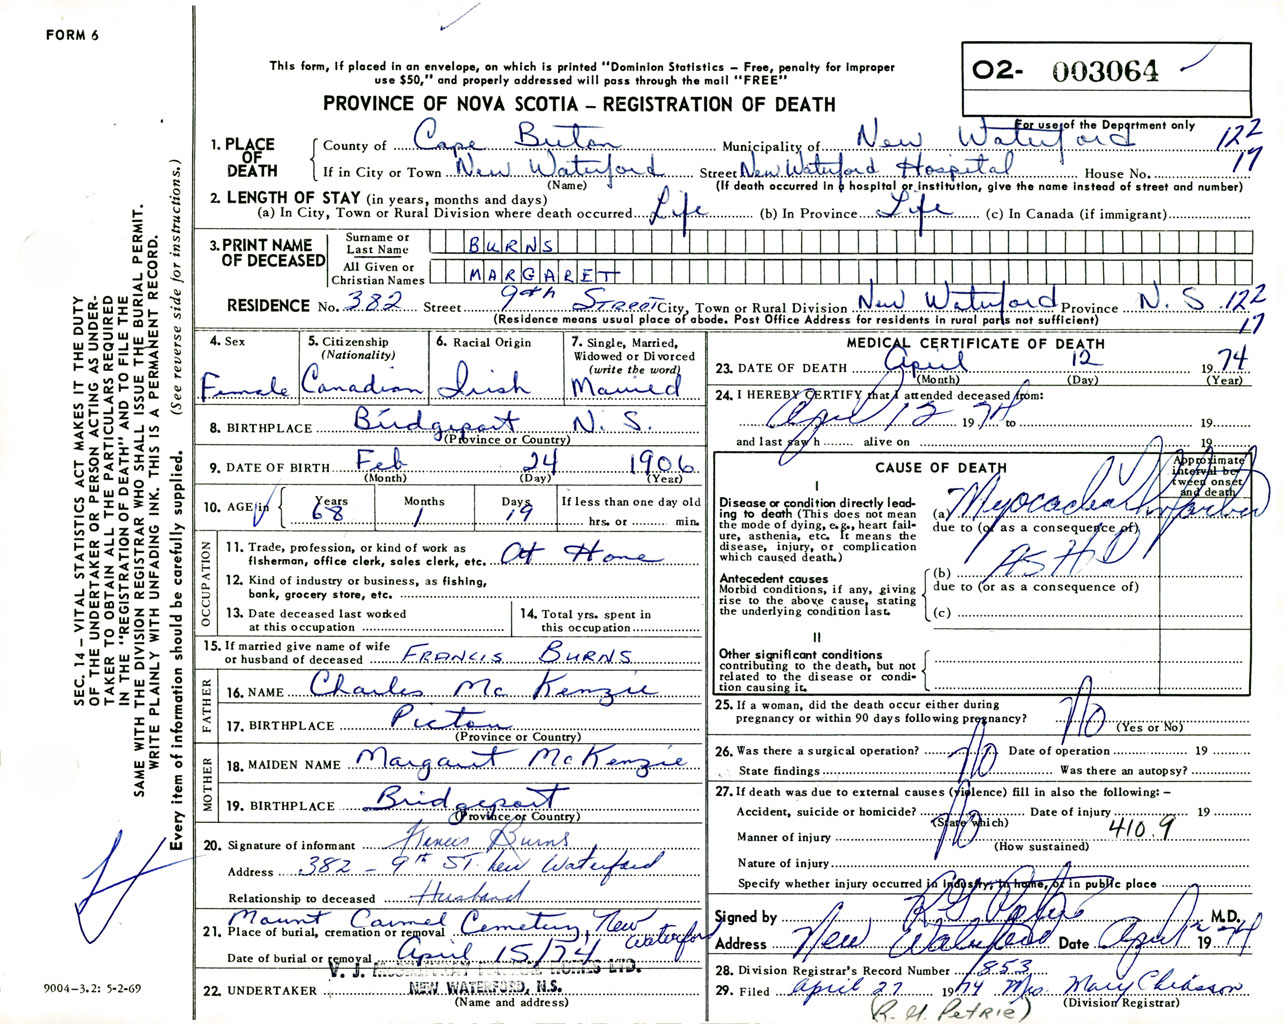 FORM 6
This form, if placed in an envelope, on which is printed "Dominion Statistics – Free, penalty for improper
use $50," and properly addressed will pass through the mail "FREE"
PROVINCE OF NOVA SCOTIA – REGISTRATION OF DEATH
02- 003064
For use of the Department only
122
17
1. PLACE OF DEATH
County of Cape Breton Municipality of New Waterford
If in City or Town New Waterford Street New Waterford Hospital House No.
(Name) (If death occurred in a hospital or institution, give the name instead of street and number)
2. LENGTH OF STAY (in years, months and days)
(a) In City, Town or Rural Division where death occurred Life (b) In Province Life (c) In Canada (if immigrant)
3. PRINT NAME OF DECEASED
Surname or Last Name BURNS
All Given or Christian Names MARGARETT
RESIDENCE No. 382 Street 9th STREET City, Town or Rural Division New Waterford Province N.S. 122
17
(Residence means usual place of abode. Post Office Address for residents in rural parts not sufficient)
4. Sex Female
5. Citizenship (Nationality) Canadian
6. Racial Origin Irish
7. Single, Married, Widowed or Divorced (write the word) Married
8. BIRTHPLACE Bridgeport N.S.
(Province or Country)
9. DATE OF BIRTH Feb 24 1906
(Month) (Day) (Year)
10. AGE in Years 68 Months 1 Days 19 If less than one day old
hrs. or min.
OCCUPATION
11. Trade, profession, or kind of work as
fisherman, office clerk, sales clerk, etc. At Home
12. Kind of industry or business, as fishing,
bank, grocery store, etc.
13. Date deceased last worked
at this occupation
14. Total yrs. spent in
this occupation
15. If married give name of wife
or husband of deceased FRANCIS BURNS
FATHER
16. NAME Charles McKenzie
17. BIRTHPLACE Picton
(Province or Country)
MOTHER
18. MAIDEN NAME Margaret McKenzie
19. BIRTHPLACE Bridgeport
(Province or Country)
20. Signature of informant Francis Burns
Address 382 - 9th ST. New Waterford
Relationship to deceased Husband
21. Place of burial, cremation or removal Mount Carmel Cemetery, New Waterford
Date of burial or removal April 15/74
22. UNDERTAKER V. J. FUNERAL HOMES LTD.
NEW WATERFORD, N.S.
(Name and address)
MEDICAL CERTIFICATE OF DEATH
23. DATE OF DEATH April 12 1974
(Month) (Day) (Year)
24. I HEREBY CERTIFY that I attended deceased from:
April 12 1974 to 19
and last saw h alive on 19
CAUSE OF DEATH
Approximate interval between onset and death
I
Disease or condition directly lead-
ing to death (This does not mean
the mode of dying, e.g., heart fail-
ure, asthenia, etc. It means the
disease, injury, or complication
which caused death.)
(a) Myocardial Infarction
due to (or as a consequence of)
Antecedent causes
Morbid conditions, if any, giving
rise to the above cause, stating
the underlying condition last.
(b) ASHD
due to (or as a consequence of)
(c)
II
Other significant conditions
contributing to the death, but not
related to the disease or condi-
tion causing it.
25. If a woman, did the death occur either during
pregnancy or within 90 days following pregnancy? No
(Yes or No)
26. Was there a surgical operation? No Date of operation 19
State findings Was there an autopsy?
27. If death was due to external causes (violence) fill in also the following: –
Accident, suicide or homicide? No Date of injury 19
(State which)
Manner of injury 410.9
(How sustained)
Nature of injury
Specify whether injury occurred in industry, in home, or in public place
Signed by R G Petrie M.D.
Address New Waterford Date April 12 1974
28. Division Registrar's Record Number 1853
29. Filed April 27 1974 Mrs. Mary Chiasson
(Division Registrar)
(R. G. PETRIE)
SEC. 14 – VITAL STATISTICS ACT MAKES IT THE DUTY
OF THE UNDERTAKER OR PERSON ACTING AS UNDER-
TAKER TO OBTAIN ALL THE PARTICULARS REQUIRED
IN THE "REGISTRATION OF DEATH" AND TO FILE THE
SAME WITH THE DIVISION REGISTRAR WHO SHALL ISSUE THE BURIAL PERMIT.
WRITE PLAINLY WITH UNFADING INK. THIS IS A PERMANENT RECORD.
Every item of information should be carefully supplied. (See reverse side for instructions.)
9004–3.2: 5-2-69